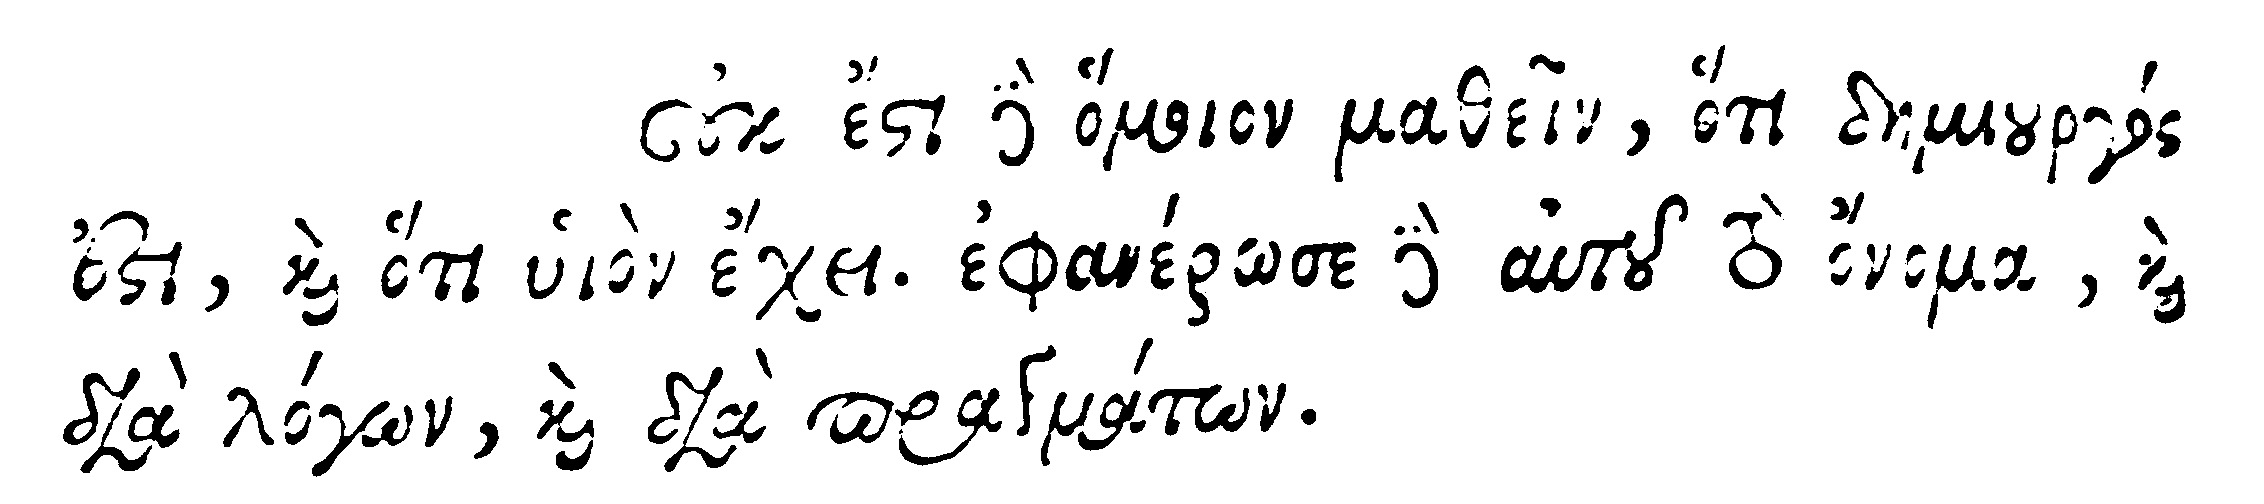 οὐκ ἔστι γὰρ ὅμοιον μαθεῖν, ὅτι δημιουργός
ἐστι, καὶ ὅτι υἱὸν ἔχει. ἐφανέρωσε γὰρ αὐτοῦ τὸ ὄνομα, καὶ
διὰ λόγων, καὶ διὰ πραγμάτων.